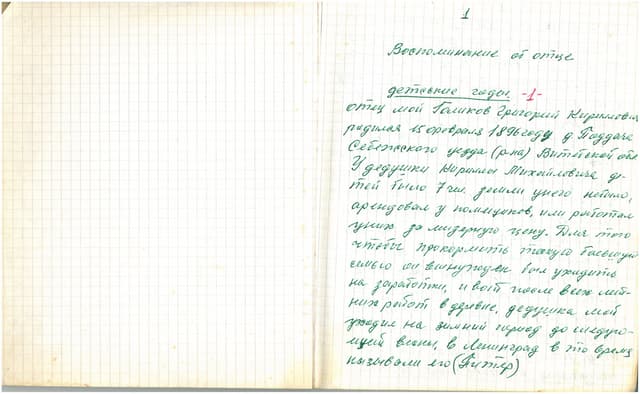 1
Воспоминание от отце
детские годы. -1-
отец мой Голиков Григорий Кириллович
родился 15 февраля 1896 году д. Поддача
Себежского уезда (р-на) Витебской обл
У дедушки Кириллы Михайловича де-
тей было 7 чел. земли у него небыло,
арендовал у помещиков, или работал
у них за мизерную цену. Для того
чтобы прокормить такую большую
семью он вынужден был уходить
на заработки, и вот после всех лет-
них работ в деревне, дедушка мой
уходил на зимний период до следую-
щей весны, в Ленинград в то время
называли его (Питер)